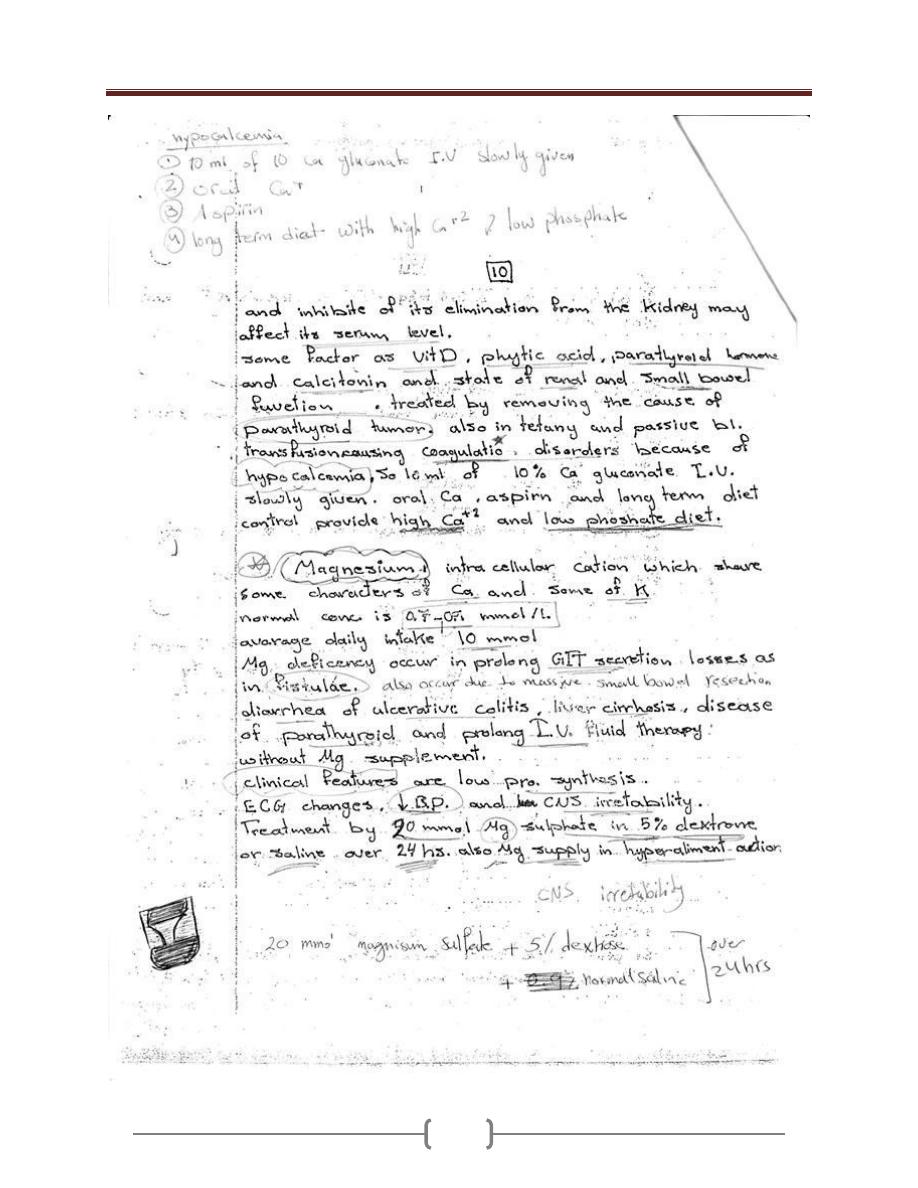 hypocalcemia
① 10 ml of 10 Ca gluconate I.V slowly given
② oral Ca+
③ Aspirin
④ long term diet with high Ca+2 & low phosphate
10
and inhibite of its elimination from the kidney may
affect its serum level.
some factor as vit D, phytic acid, parathyroid hormone
and calcitonin and state of renal and small bowel
fuvction . treated by removing the cause of
parathyroid tumor, also in tetany and passive bl.
transfusion causing coagulatio. disorders because of
hypocalcemia, so 10 ml of 10% Ca gluconate I.V.
slowly given. oral Ca, aspirn and long term diet
control provide high Ca+2 and low phoshate diet.
Magnesium, intra cellular cation which share
some characters of Ca and some of K
normal conc is mmol/L
avarage daily intake 10 mmol
Mg deficency occur in prolong GIT secretion losses as
in fistulae. also occur due to massive small bowel resection
diarrhea of ulcerative colitis, liver cirrhosis, disease
of parathyroid and prolong I.V. fluid therapy
without Mg supplement.
clinical features are low pro. synthesis.
ECG changes, ↓B.P. and CNS irretability.
Treatment by 20 mmol Mg sulphate in 5% dextrone
or saline over 24 hs. also Mg supply in hyperaliment-aution
CNS irretability
20 mmol magnisum sulfate + 5% dextrose
+ normal saline
over
24hrs